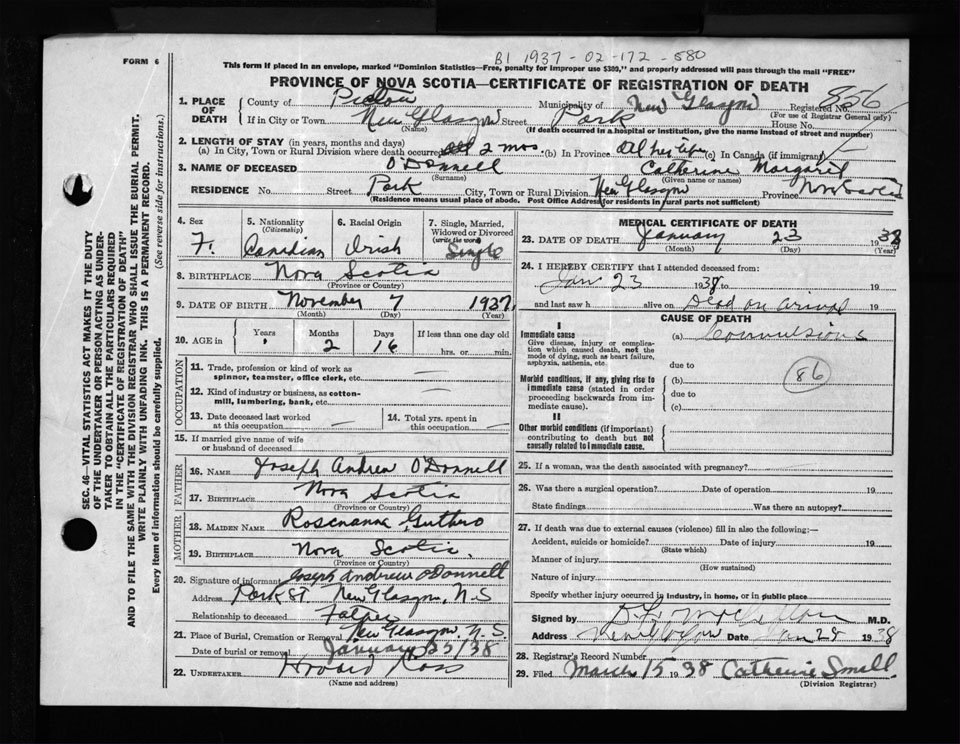 B1 1937-02-172-580
FORM 6
This form if placed in an envelope, marked "Dominion Statistics—Free, penalty for improper use $300," and properly addressed will pass through the mail "FREE"
PROVINCE OF NOVA SCOTIA—CERTIFICATE OF REGISTRATION OF DEATH
1. PLACE OF DEATH County of Pictou Municipality of New Glasgow Registered No. 856
(For use of Registrar General only)
If in City or Town New Glasgow Street Park House No.
(Name) (If death occurred in a hospital or institution, give the name instead of street and number)
2. LENGTH OF STAY (in years, months and days)
(a) In City, Town or Rural Division where death occurred All 2 mos. (b) In Province All her life (c) In Canada (if immigrant)
3. NAME OF DECEASED O'Donnell Catherine Margaret
(Surname) (Given name or names)
RESIDENCE No. Street Park City, Town or Rural Division New Glasgow Province Nova Scotia
(Residence means usual place of abode. Post Office Address for residents in rural parts not sufficient)
SEC. 46—VITAL STATISTICS ACT MAKES IT THE DUTY
OF THE UNDERTAKER OR PERSON ACTING AS UNDER-
TAKER TO OBTAIN ALL THE PARTICULARS REQUIRED
IN THE "CERTIFICATE OF REGISTRATION OF DEATH"
AND TO FILE THE SAME WITH THE DIVISION REGISTRAR WHO SHALL ISSUE THE BURIAL PERMIT.
WRITE PLAINLY WITH UNFADING INK. THIS IS A PERMANENT RECORD.
Every item of information should be carefully supplied. (See reverse side for instructions.)
4. Sex 5. Nationality 6. Racial Origin 7. Single, Married,
(Citizenship) Widowed or Divorced
(write the word)
F. Canadian Irish Single
8. BIRTHPLACE Nova Scotia
(Province or Country)
9. DATE OF BIRTH November 7 1937
(Month) (Day) (Year)
10. AGE in Years Months Days If less than one day old
2 16 hrs. or min.
OCCUPATION
11. Trade, profession or kind of work as
spinner, teamster, office clerk, etc.
12. Kind of industry or business, as cotton-
mill, lumbering, bank, etc.
13. Date deceased last worked 14. Total yrs. spent in
at this occupation this occupation
15. If married give name of wife
or husband of deceased
FATHER
16. NAME Joseph Andrew O'Donnell
17. BIRTHPLACE Nova Scotia
(Province or Country)
MOTHER
18. MAIDEN NAME Rosenanna Guthro
19. BIRTHPLACE Nova Scotia.
(Province or Country)
20. Signature of informant Joseph Andrew O'Donnell
Address Park St. New Glasgow, N.S
Relationship to deceased Father
21. Place of Burial, Cremation or Removal New Glasgow, N.S.
Date of burial or removal January 25/38
22. UNDERTAKER Howard Ross
(Name and address)
MEDICAL CERTIFICATE OF DEATH
23. DATE OF DEATH January 23 1938
(Month) (Day) (Year)
24. I HEREBY CERTIFY that I attended deceased from:
Jan 23 1938 to 19
and last saw h alive on Dead on arrival 19
CAUSE OF DEATH
I
Immediate cause (a) Convulsions
Give disease, injury or complica-
tion which caused death, not the
mode of dying, such as heart failure,
asphyxia, asthenia, etc. due to
Morbid conditions, if any, giving rise to (b) 86
immediate cause (stated in order due to
proceeding backwards from im-
mediate cause). (c)
II
Other morbid conditions (if important)
contributing to death but not
causally related to immediate cause.
25. If a woman, was the death associated with pregnancy?
26. Was there a surgical operation? Date of operation 19
State findings Was there an autopsy?
27. If death was due to external causes (violence) fill in also the following:—
Accident, suicide or homicide? Date of injury 19
(State which)
Manner of injury
(How sustained)
Nature of injury
Specify whether injury occurred in industry, in home, or in public place
Signed by M.D.
Address Date Jan 28 1938
28. Registrar's Record Number
29. Filed March 15 1938 Catherine Small
(Division Registrar)